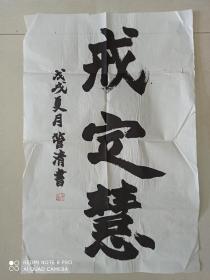 戒定慧
戊戌夏月管清書
REDMI NOTE 8 PRO
AI QUAD CAMERA